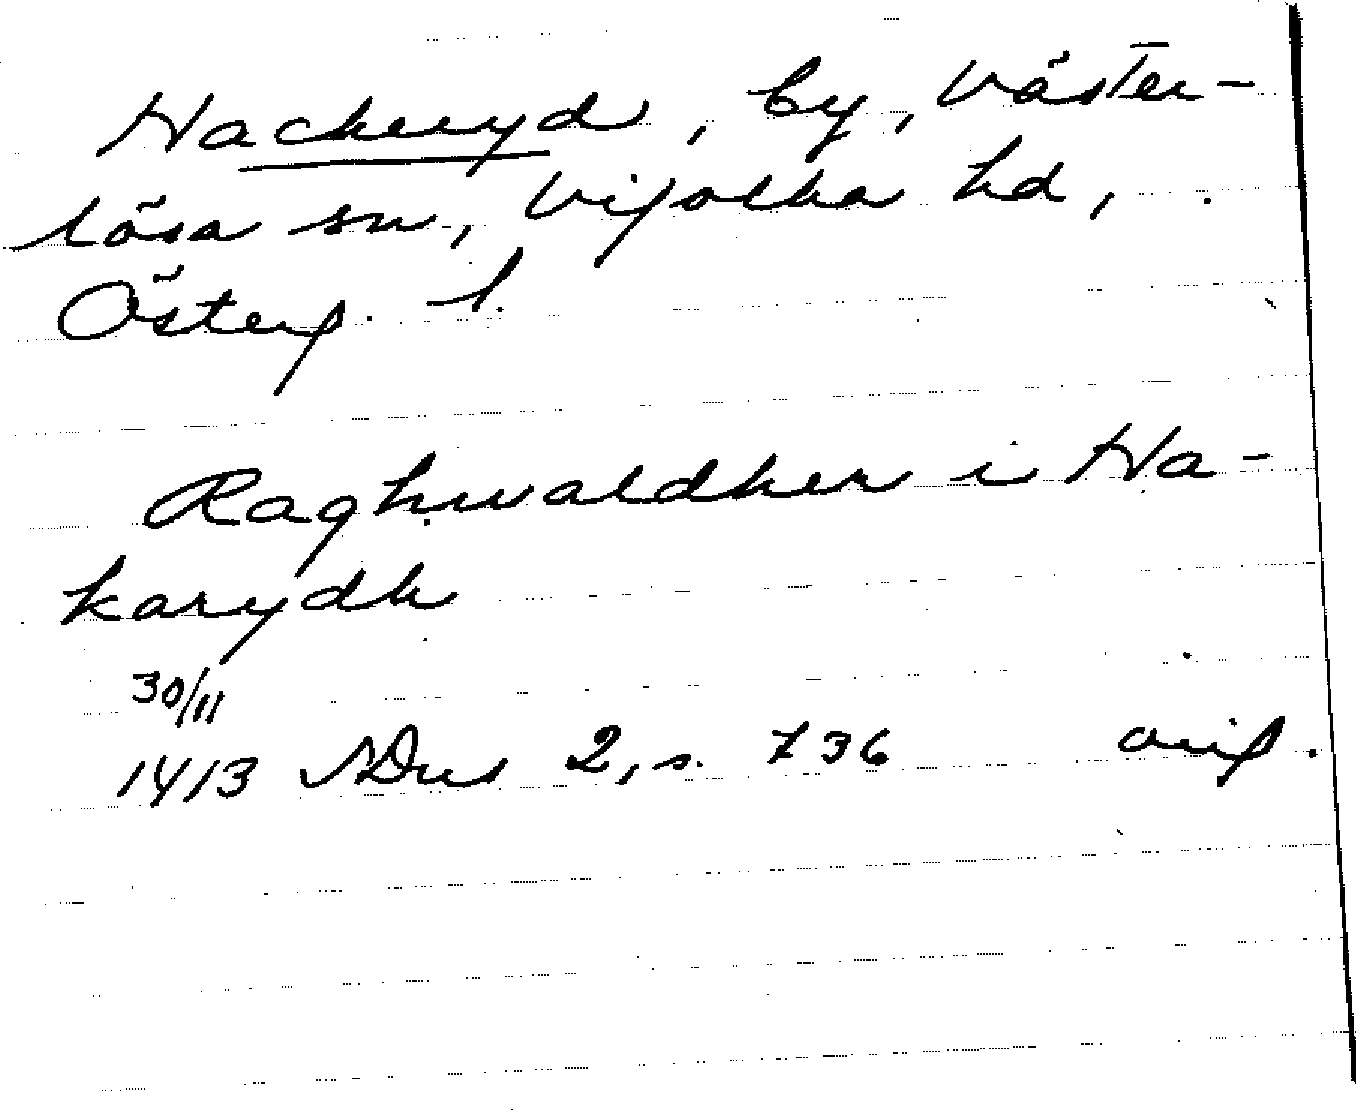 Hackeryd, by, Väster-
lösa sn, Vifolka hd,
Österg. l.
Raghwaldher i Ha-
karydh
30/11
1413 SDns 2, s. 736 orig.